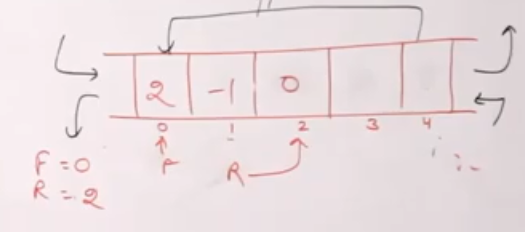 2 -1 0
0 1 2 3 4
F R
F = 0
R = 2